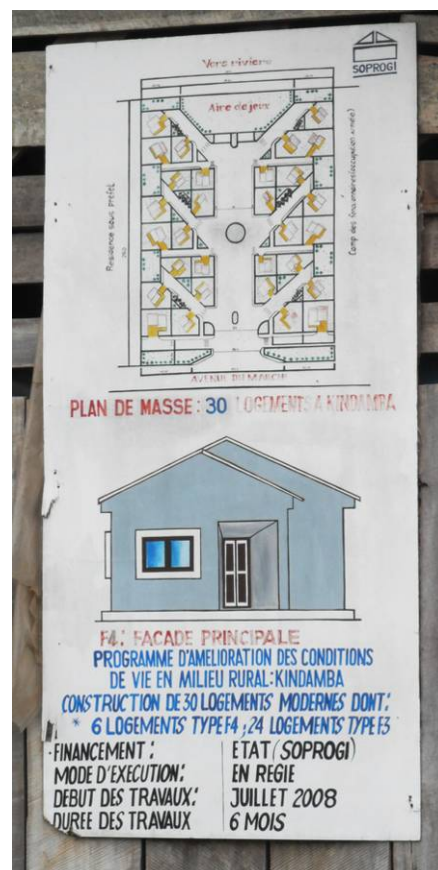 SOPROGI
Vers rivière
Aire de jeux
Résidence sous préfet
AVENUE DU MARCHE
PLAN DE MASSE: 30 LOGEMENTS A KINDAMBA
F4: FACADE PRINCIPALE
PROGRAMME D'AMELIORATION DES CONDITIONS
DE VIE EN MILIEU RURAL: KINDAMBA
CONSTRUCTION DE 30 LOGEMENTS MODERNES DONT:
* 6 LOGEMENTS TYPE F4; 24 LOGEMENTS TYPE F3
FINANCEMENT: ETAT (SOPROGI)
MODE D'EXECUTION: EN REGIE
DEBUT DES TRAVAUX: JUILLET 2008
DUREE DES TRAVAUX 6 MOIS